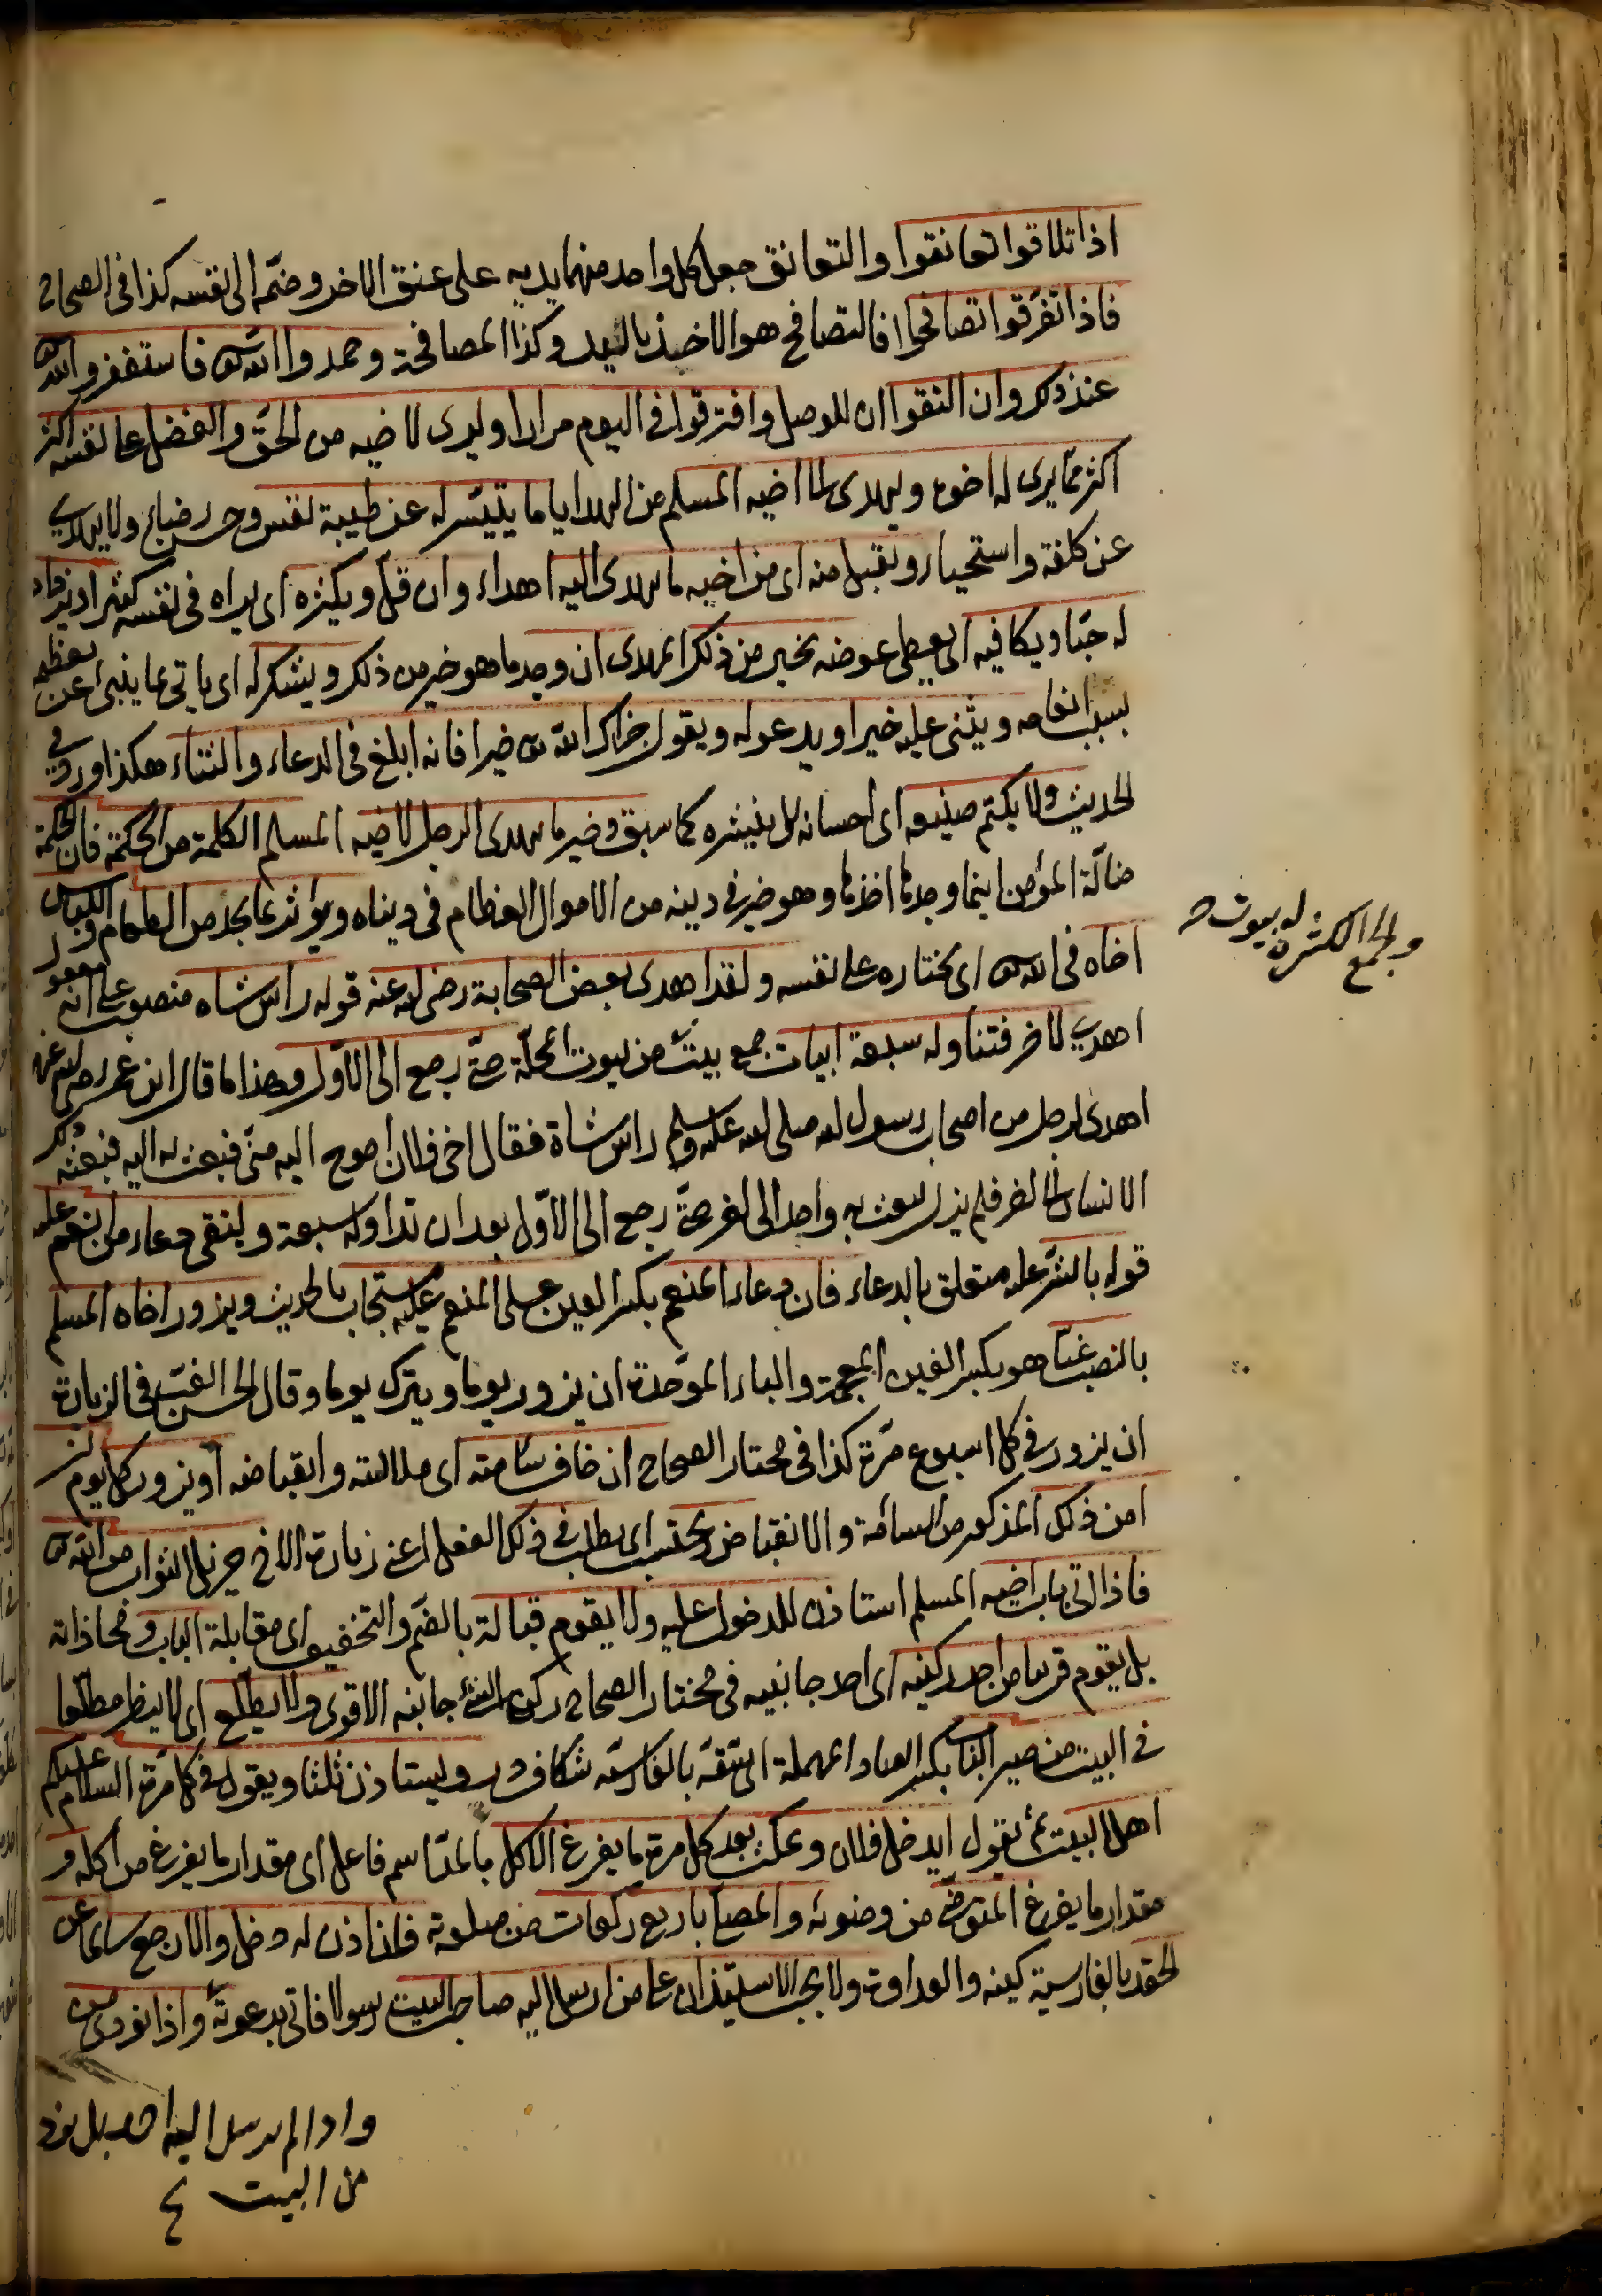 اذا تلاقوا تعانقوا والتعانق جعل كل واحد منهما يديه على عنق الاخر وضمه الى نفسه كذا فى الصحاح
فاذا تفرقوا تصافحوا فالتصافح هو الاخذ باليد وكذا المصافحة وحمدوا الله تع فاستغفروا الله
عند ذلك وان التقوا ان للوصل وافترقوا فى اليوم مرارا ويرى لاخيه من الحق والفضل على نفسه اكثر
اكثر مما يرى له اخوه ويهدى الى اخيه المسلم من الهدايا ما يتيسر له عن طيبة نفس وحسن رضاء ولا يهدى
عن كلفة واستحياء ويقبل منه اى من اخيه ما يهدى اليه اهداء وان قل ويكثره اى يراه فى نفسه كثيرا
له حبا ويكافيه اى يعطى عوضه بخير من ذلك المهدى ان وجد ما هو خير من ذلك ويشكر له اى ياتى بما ينبئ عن تعظيمه
بسبب انعامه ويثنى عليه خيرا ويدعو له ويقول جزاك الله تع خيرا فانه ابلغ فى الدعاء والثناء هكذا ورد فى
الحديث ولا يكتم صنيعه اى احسانه بل ينشره كما سبق وخير ما يهدى الرجل لاخيه المسلم الكلمة من الحكمة فان الحكمة
ضالة المؤمن اينما وجدها اخذها وهو خير فى دينه من الاموال العظام فى دنياه ويؤثر بما يجد من الطعام واللباس
اخاه فى الله تع اى يختاره على نفسه ولقد اهدى بعض الصحابة رضى الله عنه قوله راس شاه منصوب على انه مفعول
اهدى لاخر فتناوله سبعة ابيات جمع بيت من بيوت المحلة حتى رجع الى الاول وهذا ما قال ابن عمر رضى الله عنه
اهدى لرجل من اصحاب رسول الله صلى الله عليه وسلم راس شاة فقال اخى فلان احوج اليه منى فبعث له اليه فبعثه ذلك
الانسان الى اخر فلم يزل يبعث به واحد الى اخر حتى رجع الى الاول بعد ان تداوله سبعة وليتقى دعاء من انعم عليه
قوله بالشر عليه متعلق بالدعاء فان دعاء المنعم بكسر العين على المنعم عليه مستجاب بالحديث ويزور اخاه المسلم
بالنصب غبا هو بكسر الغين المعجمة والباء الموحدة ان يزور يوما ويترك يوما وقال الحسن الغب فى الزيارة
ان يزور فى كل اسبوع مرة كذا فى مختار الصحاح ان خاف سآمته اى ملالته وانقباضه او يزور كل يوم ان
امن ذلك المذكور من السامة والانقباض ويحتسب اى يطلب فى ذلك الفعل اعنى زيارة الاخ جزيل الثواب من الله تع
فاذا اتى باب اخيه المسلم استاذن للدخول عليه ولا يقوم قبالة بالضم والتخفيف اى مقابلة الباب ومحاذاته
بل يقوم قريبا من احد ركنيه اى احد جانبيه فى مختار الصحاح ركن الشئ جانبه الاقوى ولا يطلع اى لا ينظر مطلعا
فى البيت من صير الباب بكسر الصاد المهملة اى شقه بالفارسية شكاف در ويستاذن ثلثا ويقول فى كل مرة السلام عليكم
اهل البيت ثم يقول ايدخل فلان ويمكث بعد كل مرة ما يفرغ الاكل بالمد اسم فاعل اى مقدار ما يفرغ من اكله و
مقدار ما يفرغ المتوضى من وضوئه والمصلى باربع ركعات من صلوته فان اذن له دخل والا رجع سالما عن
الحقد بالفارسية كينه والعداوة ولا يجب الاستيذان على من ارسل اليه صاحب البيت رسولا فاتى بدعوته واذا نودى من
والجمع الكثرة له بيوت
واذا لم يرسل اليه احد بل نود
من البيت